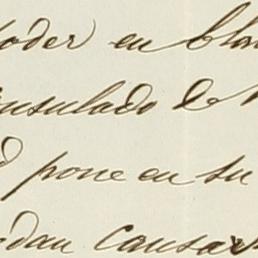 poder en bla
nsulado de M
d pone en su
edan causar